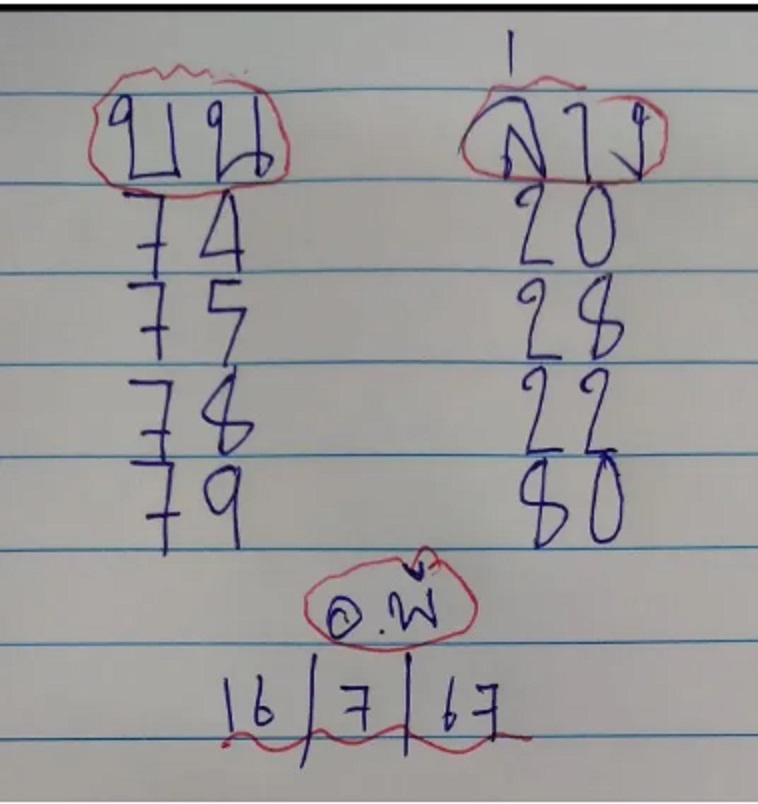 บน ล่าง
74 20
75 28
78 22
79 80
อ.พ้
16/7/67